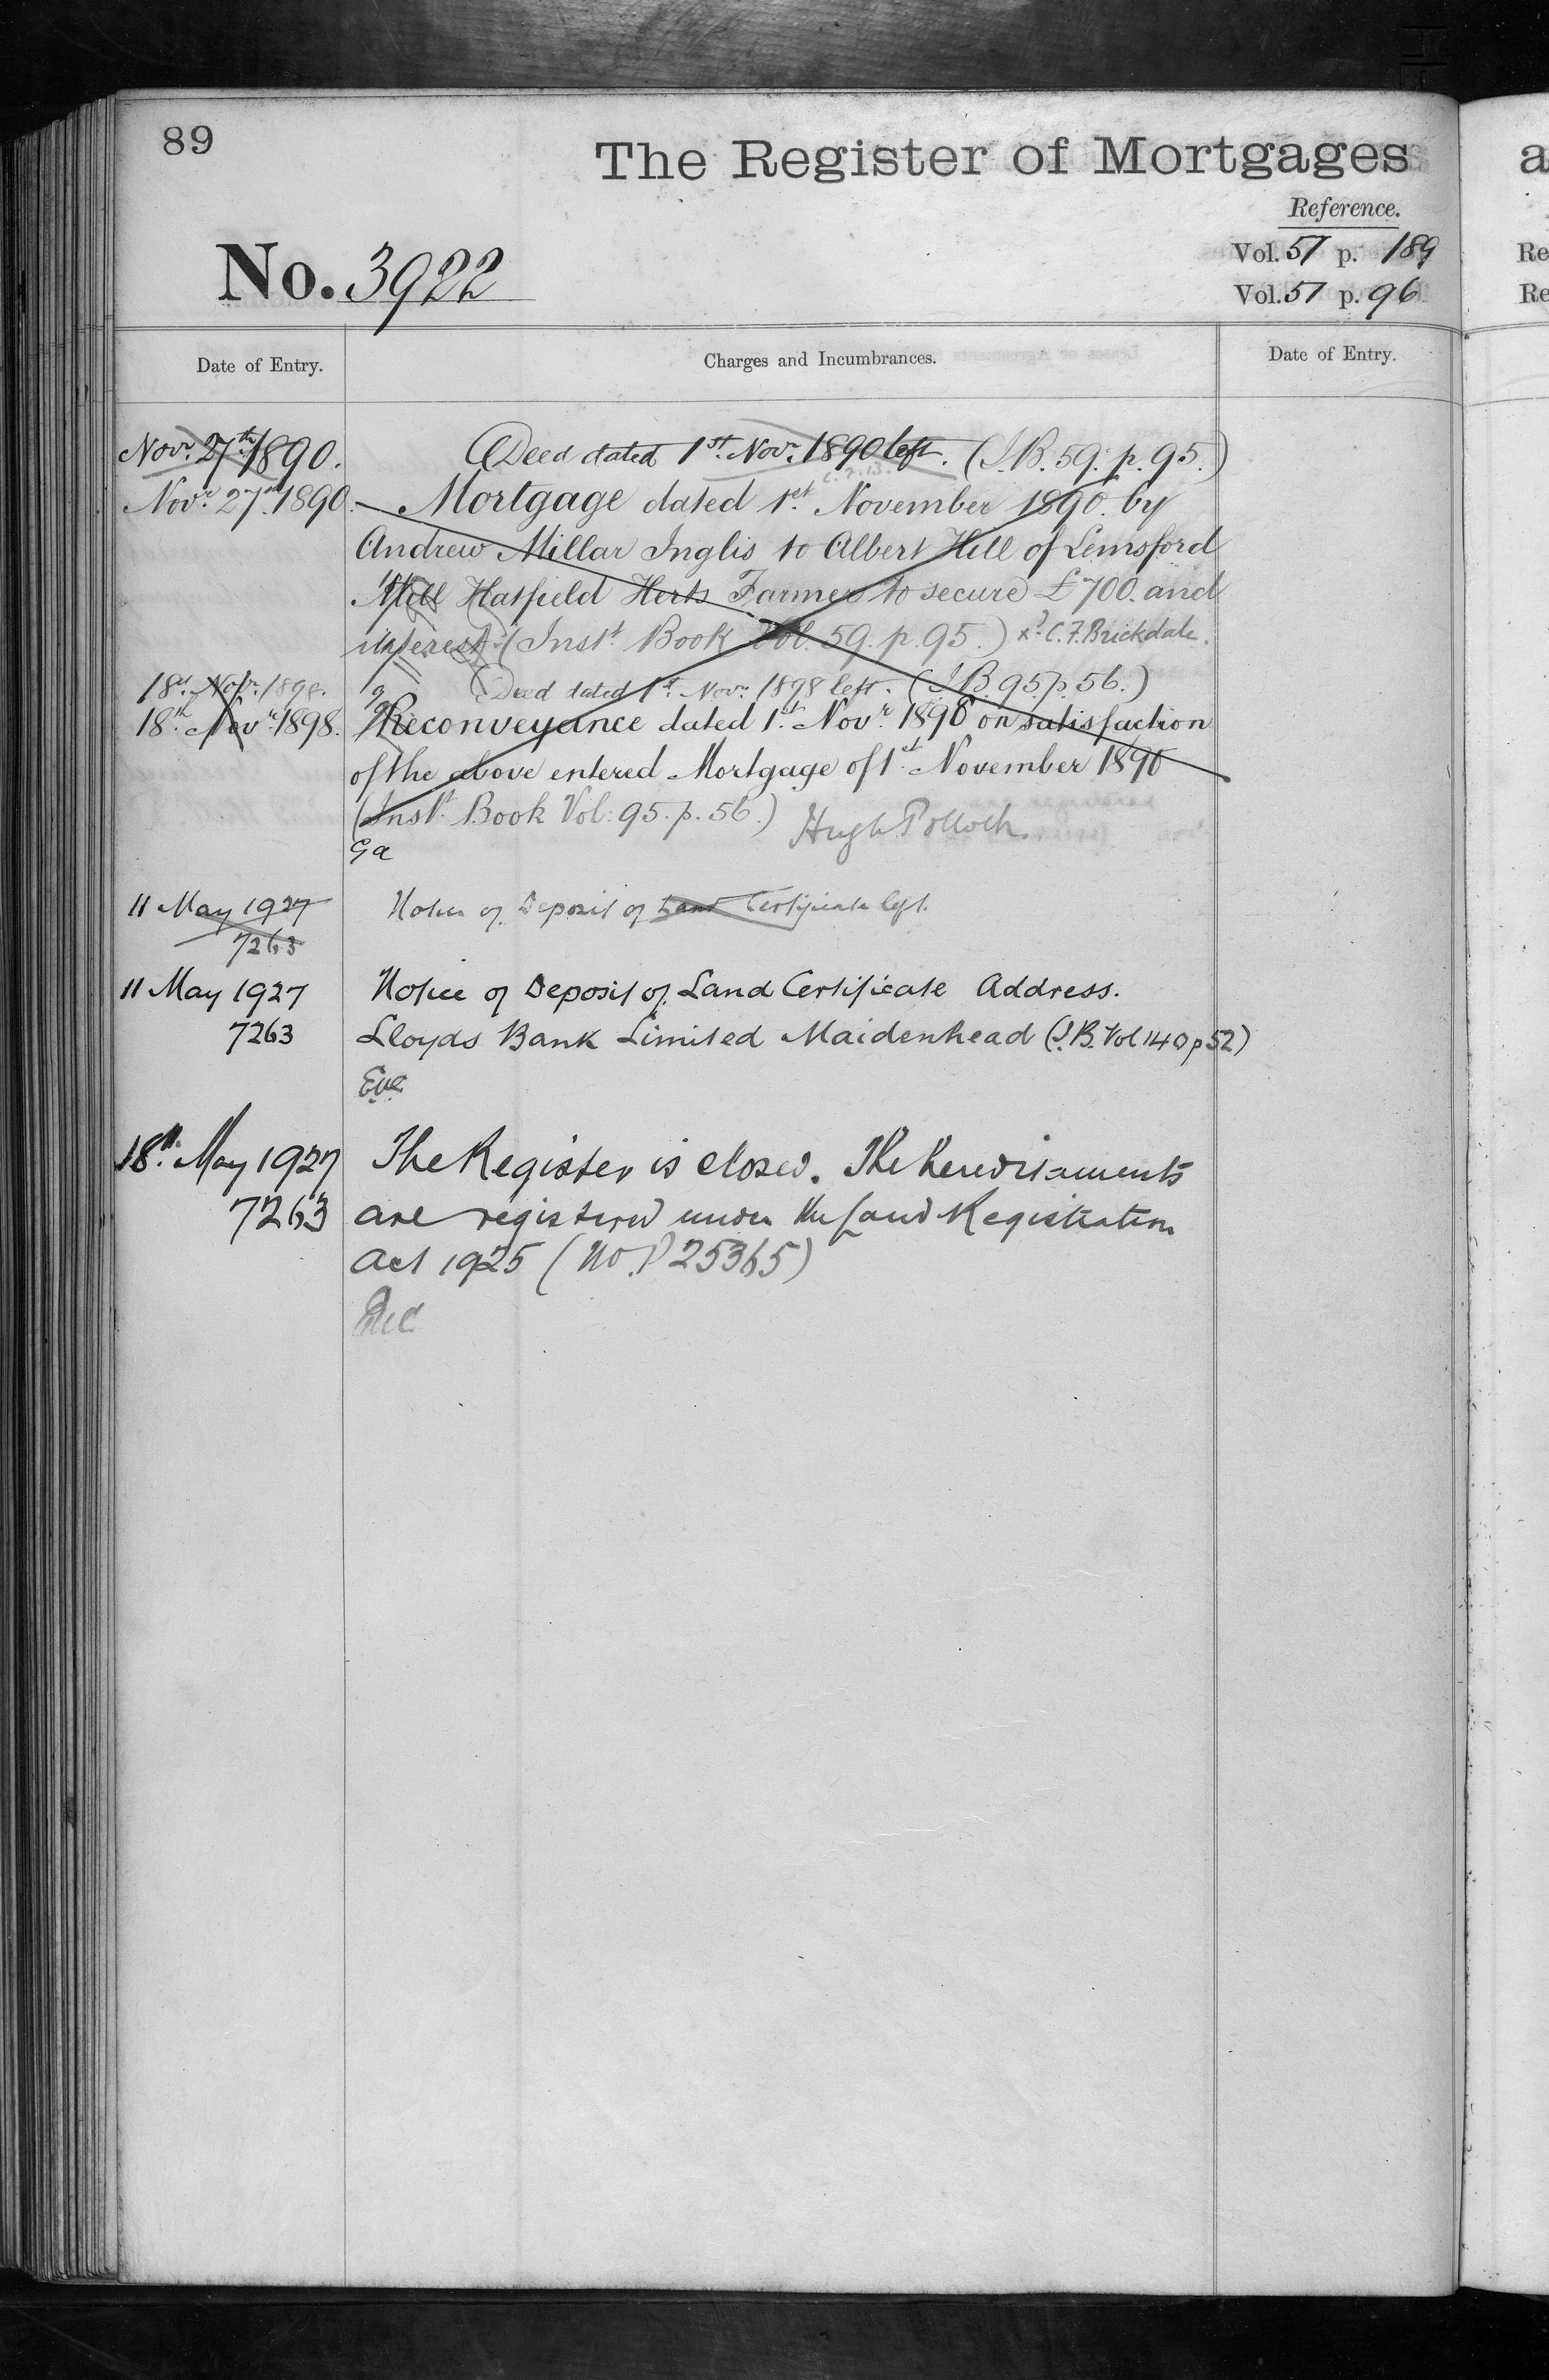 89
The Register of Mortgages
Reference.
No. 3922
Vol. 57 p. 189
Vol. 57 p. 96
Date of Entry.
Charges and Incumbrances.
Date of Entry.
Novr. 27th 1890.
Deed dated 1st. Novr. 1890 left. (I.B. 59. p. 95.)
Novr. 27th 1890.
Mortgage dated 1st. November 1890. by
Andrew Millar Inglis to Albert Hill of Lemsford
Mill Hatfield Herts Farmer to secure £700. and
interest. (Inst. Book Vol. 59. p. 95.) C. F. Brickdale.
18th. Novr. 1898.
Deed dated 1st. Novr. 1898 left. (I.B. 95. p. 56.)
18th. Novr. 1898.
Reconveyance dated 1st. Novr. 1898 on satisfaction
of the above entered Mortgage of 1st. November 1890
(Inst. Book Vol: 95. p. 56.) Hugh Pollock
Ga
11 May 1927
7263
Notice of Deposit of Land Certificate left.
11 May 1927
7263
Notice of Deposit of Land Certificate Address.
Lloyds Bank Limited Maidenhead (I.B. Vol 140 p 52)
18th. May 1927
7263
The Register is closed. The hereditaments
are registered under the Land Registration
Act 1925 (No. P 25365)
a
Re
Re